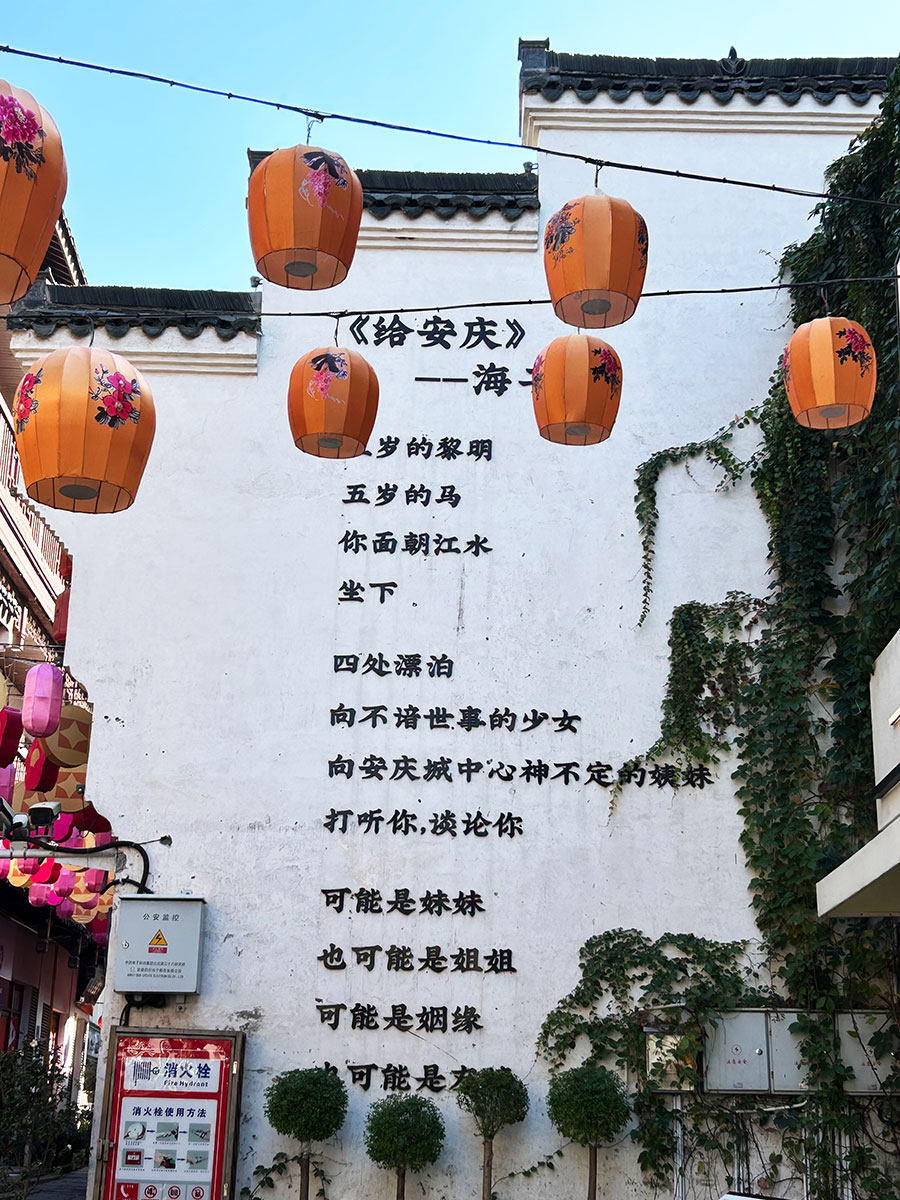 《给安庆》
——海
岁的黎明
五岁的马
你面朝江水
坐下
四处漂泊
向不谙世事的少女
向安庆城中心神不定的姨妹
打听你,谈论你
可能是妹妹
也可能是姐姐
可能是姻缘
可能是
公安监控
消火栓
Fire Hydrant
消火栓使用方法